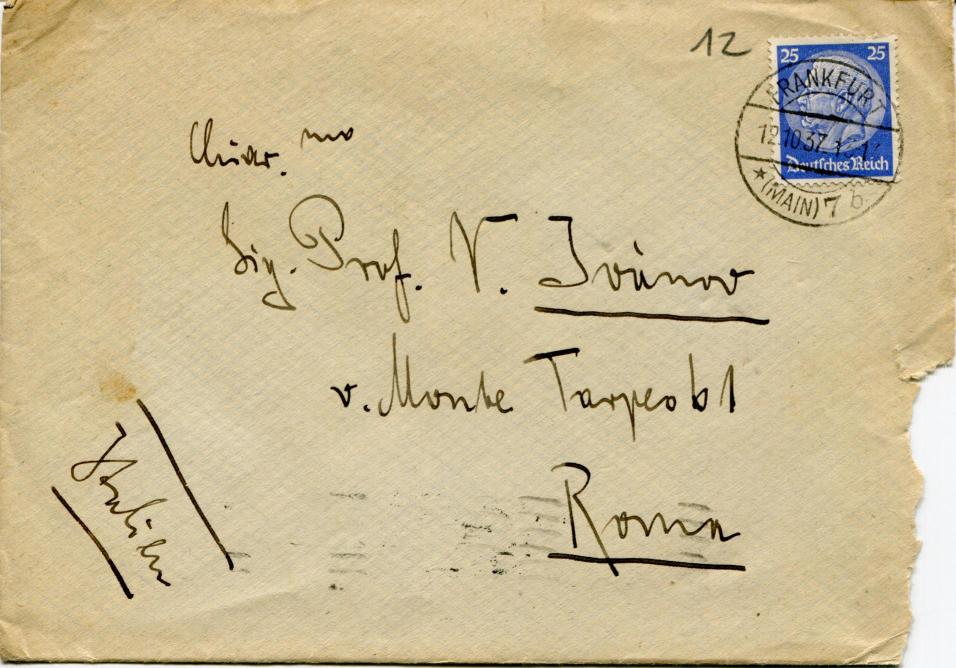 12
25 25
FRANKFURT
12.10.37
Deutsches Reich
* (MAIN) 7 b
Chiar. mo
Sig. Prof. V. Ivànov
v. Monte Tarpeo 61
Roma
Italien